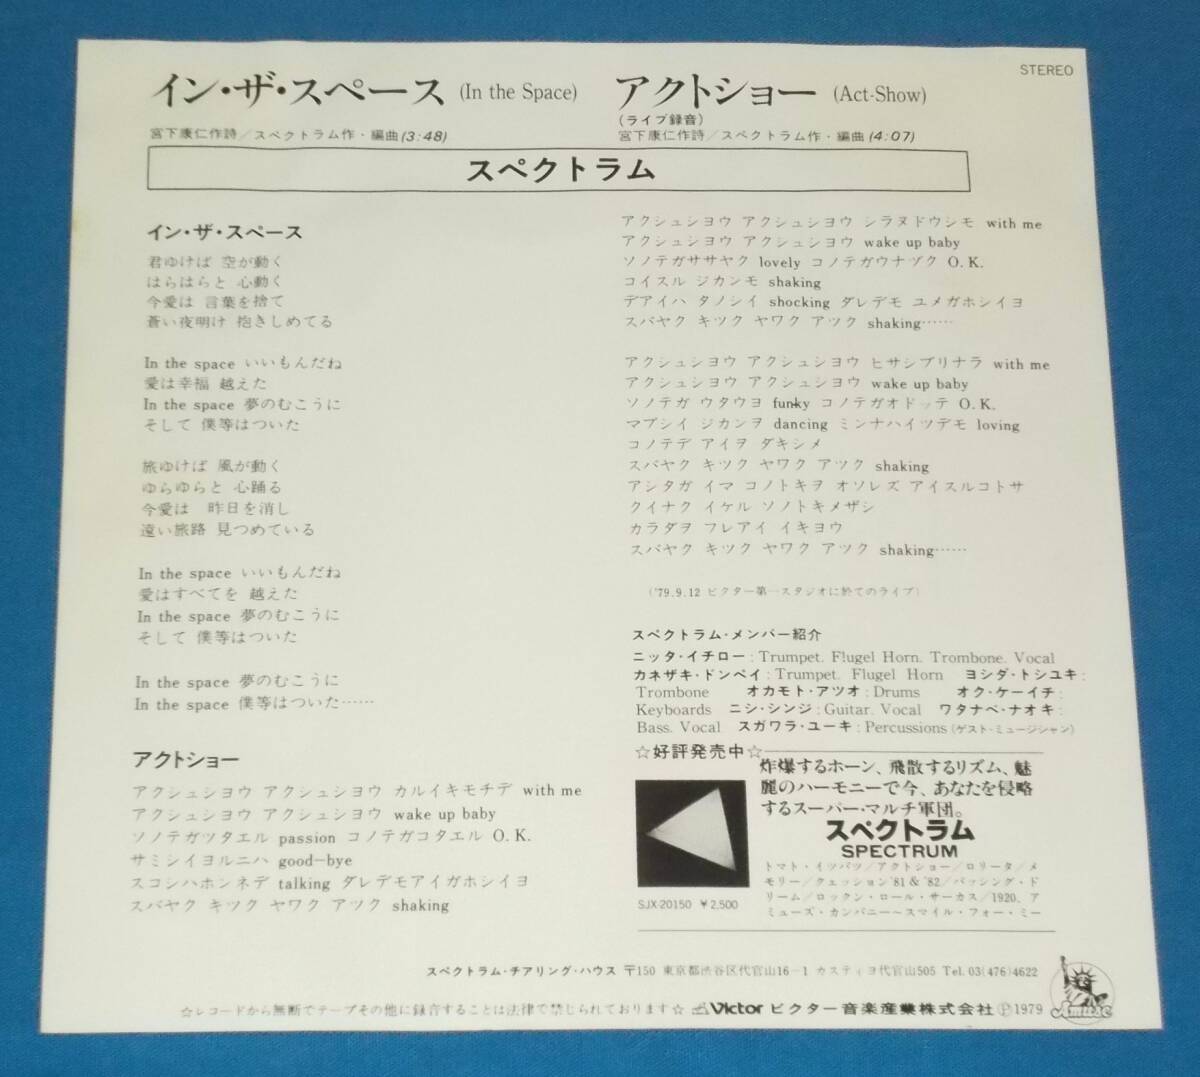 STEREO
イン・ザ・スペース (In the Space)
宮下康仁作詩/スペクトラム作・編曲(3:48)
アクトショー (Act-Show)
(ライブ録音)
宮下康仁作詩/スペクトラム作・編曲(4:07)
スペクトラム
イン・ザ・スペース
君ゆけば 空が動く
はらはらと 心動く
今愛は 言葉を捨て
蒼い夜明け 抱きしめてる
In the space いいもんだね
愛は幸福 越えた
In the space 夢のむこうに
そして 僕等はついた
旅ゆけば 風が動く
ゆらゆらと 心踊る
今愛は 昨日を消し
遠い旅路 見つめている
In the space いいもんだね
愛はすべてを 越えた
In the space 夢のむこうに
そして 僕等はついた
In the space 夢のむこうに
In the space 僕等はついた……
アクトショー
アクシュシヨウ アクシュシヨウ カルイキモチデ with me
アクシュシヨウ アクシュシヨウ wake up baby
ソノテガツタエル passion コノテガコタエル O.K.
サミシイヨルニハ good-bye
スコシハホンネデ talking ダレデモアイガホシイヨ
スバヤク キツク ヤワク アツク shaking
アクシュシヨウ アクシュシヨウ シラヌドウシモ with me
アクシュシヨウ アクシュシヨウ wake up baby
ソノテガササヤク lovely コノテガウナヅク O.K.
コイスル ジカンモ shaking
デアイハ タノシイ shocking ダレデモ ユメガホシイヨ
スバヤク キツク ヤワク アツク shaking……
アクシュシヨウ アクシュシヨウ ヒサシブリナラ with me
アクシュシヨウ アクシュシヨウ wake up baby
ソノテガ ウタウヨ funky コノテガオドッテ O.K.
マブシイ ジカンヲ dancing ミンナハイツデモ loving
コノテデ アイヲ ダキシメ
スバヤク キツク ヤワク アツク shaking
アシタガ イマ コノトキヲ オソレズ アイスルコトサ
クイナク イケル ソノトキメザシ
カラダヲ フレアイ イキヨウ
スバヤク キツク ヤワク アツク shaking……
('79.9.12 ビクター第一スタジオに於てのライブ)
スペクトラム・メンバー紹介
ニッタ・イチロー: Trumpet. Flugel Horn. Trombone. Vocal
カネザキ・ドンペイ: Trumpet. Flugel Horn ヨシダ・トシユキ:
Trombone オカモト・アツオ: Drums オク・ケーイチ:
Keyboards ニシ・シンジ: Guitar. Vocal ワタナベ・ナオキ:
Bass. Vocal スガワラ・ユーキ: Percussions (ゲスト・ミュージシャン)
☆好評発売中☆
炸爆するホーン、飛散するリズム、魅
麗のハーモニーで今、あなたを侵略
するスーパー・マルチ軍団。
スペクトラム
SPECTRUM
トマト・イッパツ/アクトショー/ロリータ/メ
モリー/クェッション'81&'82/パッシング・ド
リーム/ロックン・ロール・サーカス/1920、ア
ミューズ・カンパニー〜スマイル・フォー・ミー
SJX-20150 ¥2,500
スペクトラム・チアリング・ハウス 〒150 東京都渋谷区代官山16-1 カスティヨ代官山505 Tel.03(476)4622
☆レコードから無断でテープその他に録音することは法律で禁じられております☆ Victor ビクター音楽産業株式会社 Ⓟ1979
Amuse